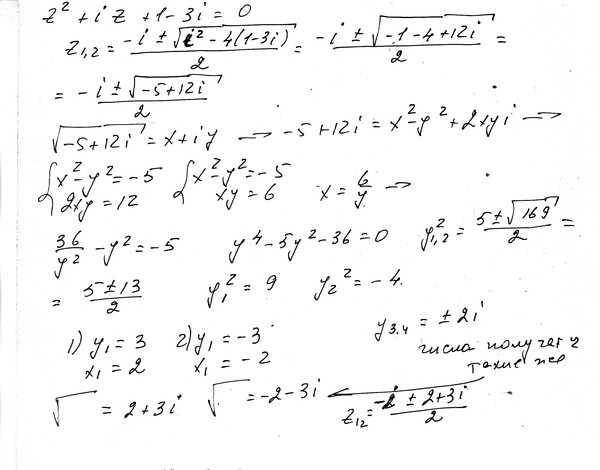 z² + iz + 1 - 3i = 0
z₁,₂ = (-i ± √(i² - 4(1-3i)))/2 = (-i ± √(-1-4+12i))/2 =
= (-i ± √(-5+12i))/2
√(-5+12i) = x+iy → -5+12i = x²-y²+2xyi →
{x²-y²=-5 2xy=12 {x²-y²=-5 xy=6 x = 6/y →
36/y² - y² = -5 y⁴-5y²-36=0 y²₁,₂ = (5±√169)/2 =
= (5±13)/2 y₁² = 9 y₂² = -4.
1) y₁ = 3 2) y₁ = -3 y₃.₄ = ± 2i
x₁ = 2 x₁ = -2 числа получат
такие же
√ = 2+3i √ = -2-3i z₁₂ = (-i ± 2+3i)/2